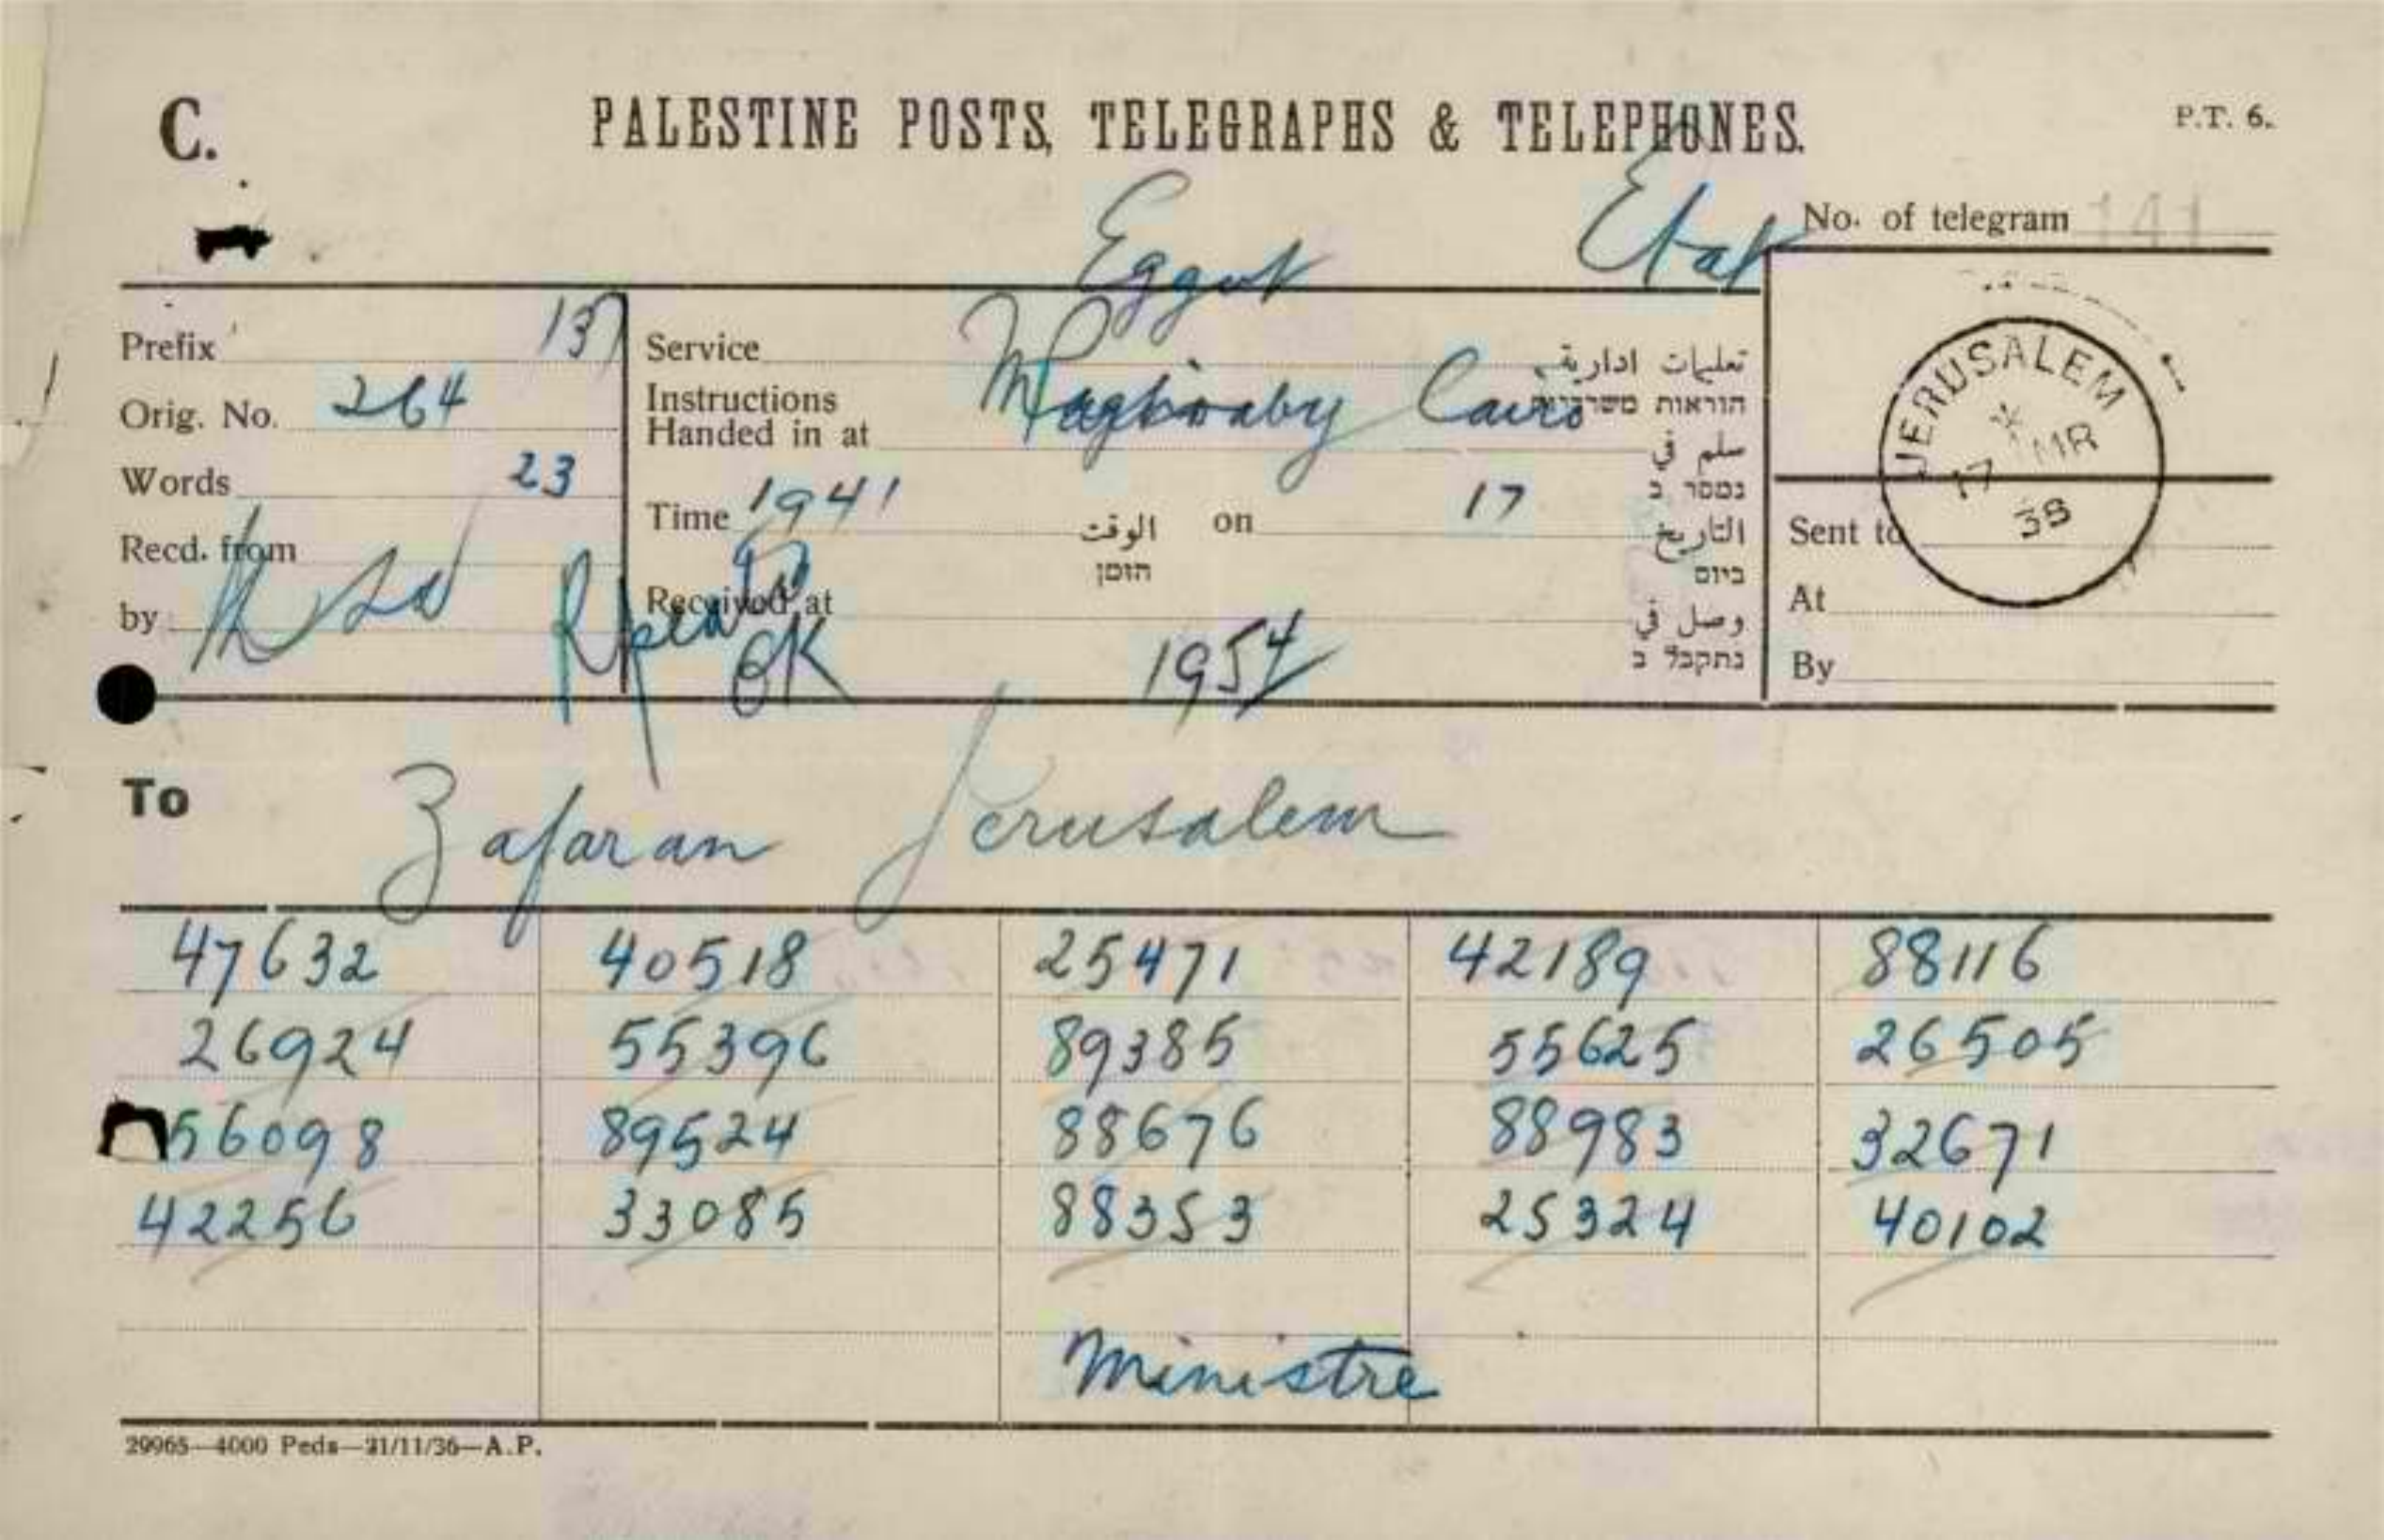 C. PALESTINE POSTS, TELEGRAPHS & TELEPHONES. P.T. 6.
Etat
No. of telegram 141
Prefix 137
Orig. No. 264
Words 23
Recd. from
by
Service تعليمات ادارية
Instructions הוראות משרדיות
Handed in at Cairo سلم في
נמסר ב
Time 1941 الوقت on 17 التاريخ
הזמן ביום
Received at وصل في
OK 1954 נתקבל ב
JERUSALEM
17 MR
38
Sent to
At
By
To Zafaran Jerusalem
47632 40518 25471 42189 88116
26924 55396 89385 55625 26505
56098 89524 88676 88983 32671
42256 33085 88353 25324 40102
Ministre
29965—4000 Peds—31/11/36—A.P.